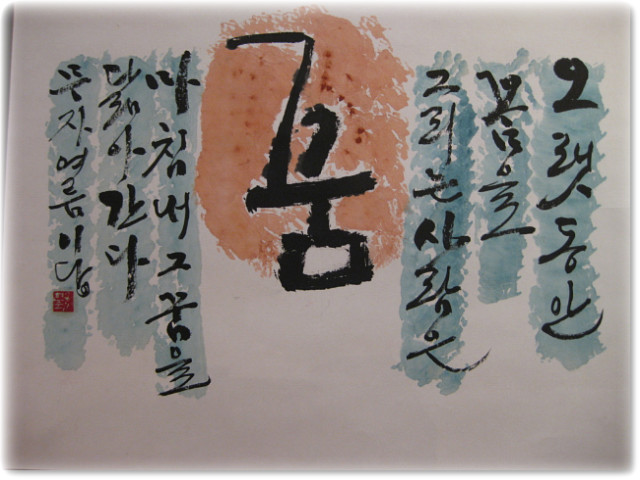 오랫동안
꿈을
그리는 사람은
꿈
마침내 그 꿈을
닮아간다
무자여름